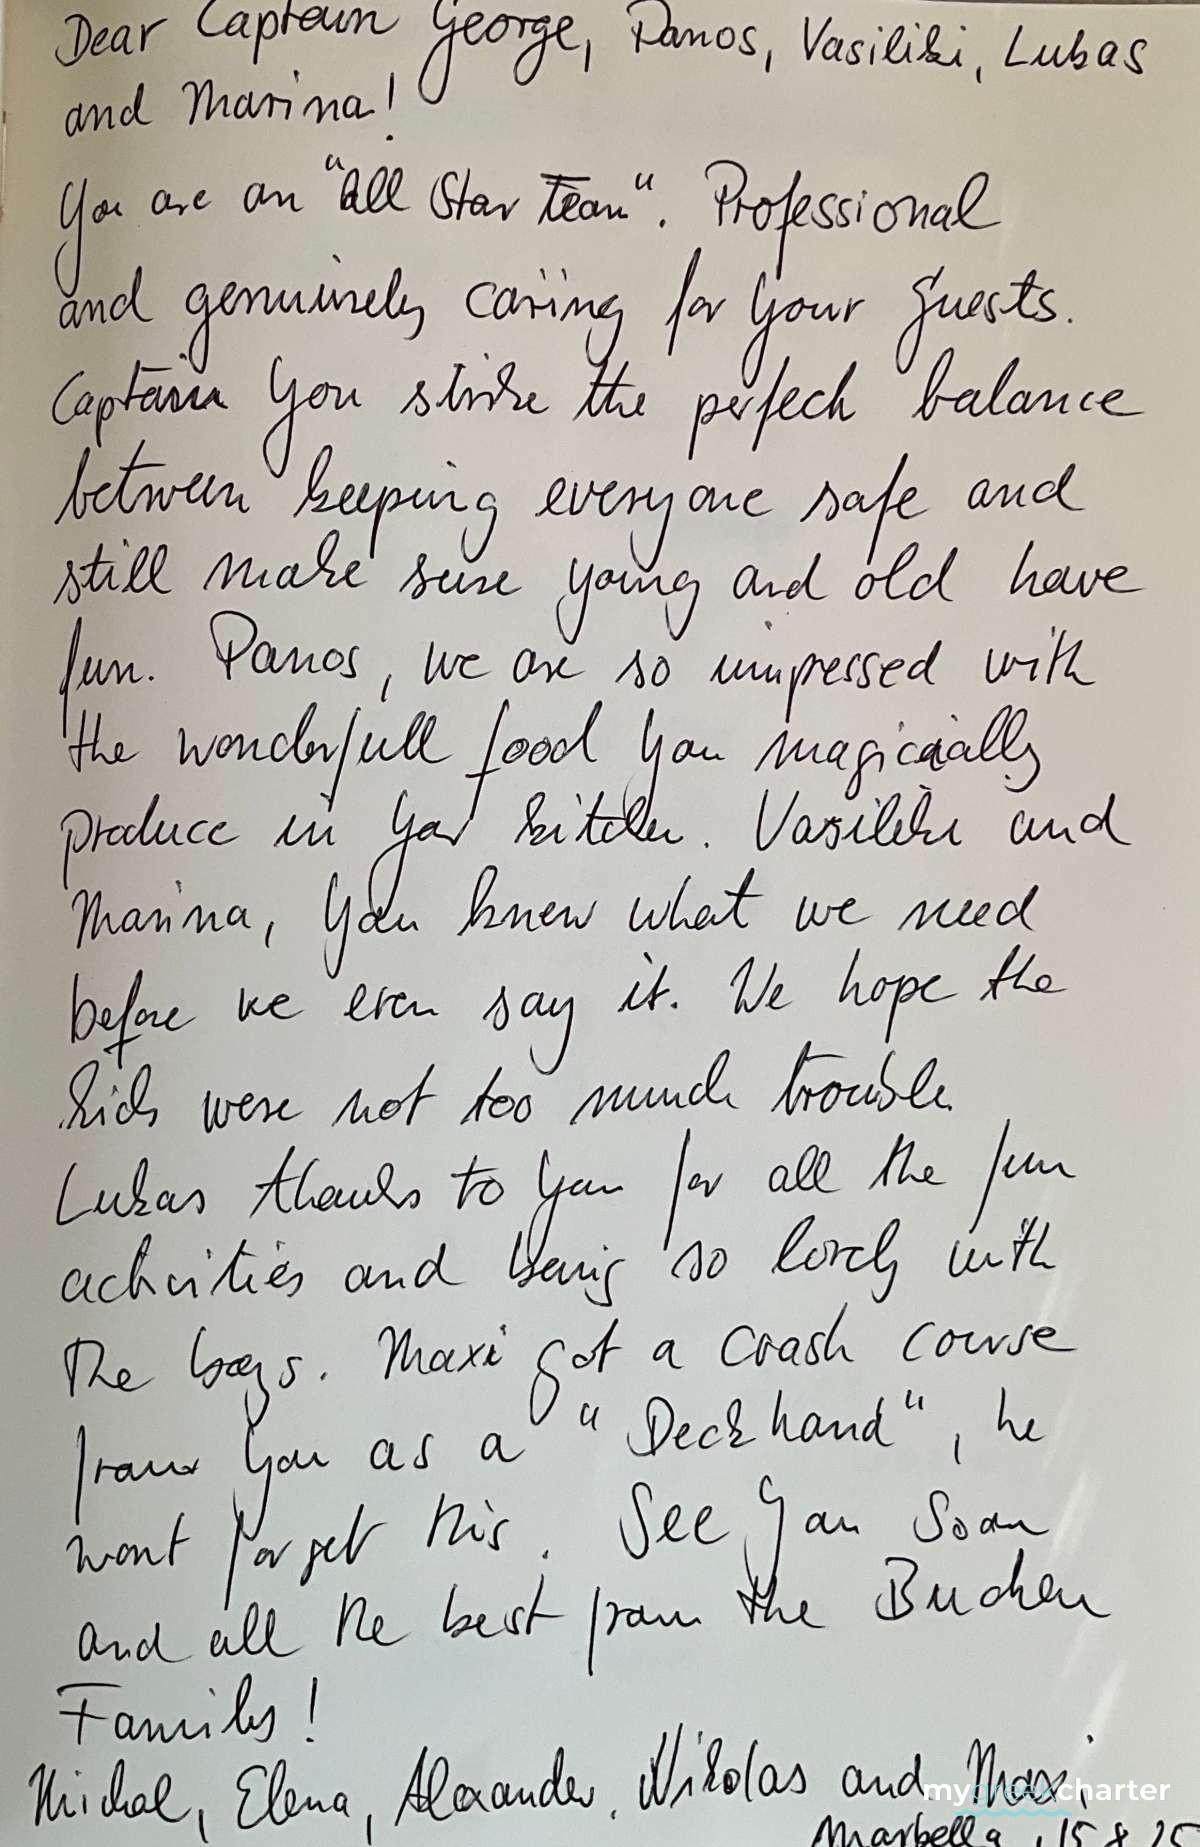 Dear Captain George, Panos, Vasiliki, Lukas
and Marina!
You are an "All Star Team". Professional
and genuinely caring for your guests.
Captain You strike the perfect balance
between keeping everyone safe and
still make sure young and old have
fun. Panos, we are so impressed with
the wonderfull food you magically
produce in your kitchen. Vasiliki and
Marina, you knew what we need
before we even say it. We hope the
kids were not too much trouble.
Lukas thanks to you for all the fun
activities and being so lovely with
the boys. Maxi got a crash course
from you as a "Deckhand", he
wont forget this. See you soon
and all the best from the
Family!
Michal, Elena, Alexander, Nikolas and Maxi,
Marbella, 15.8.25
mygreekcharter